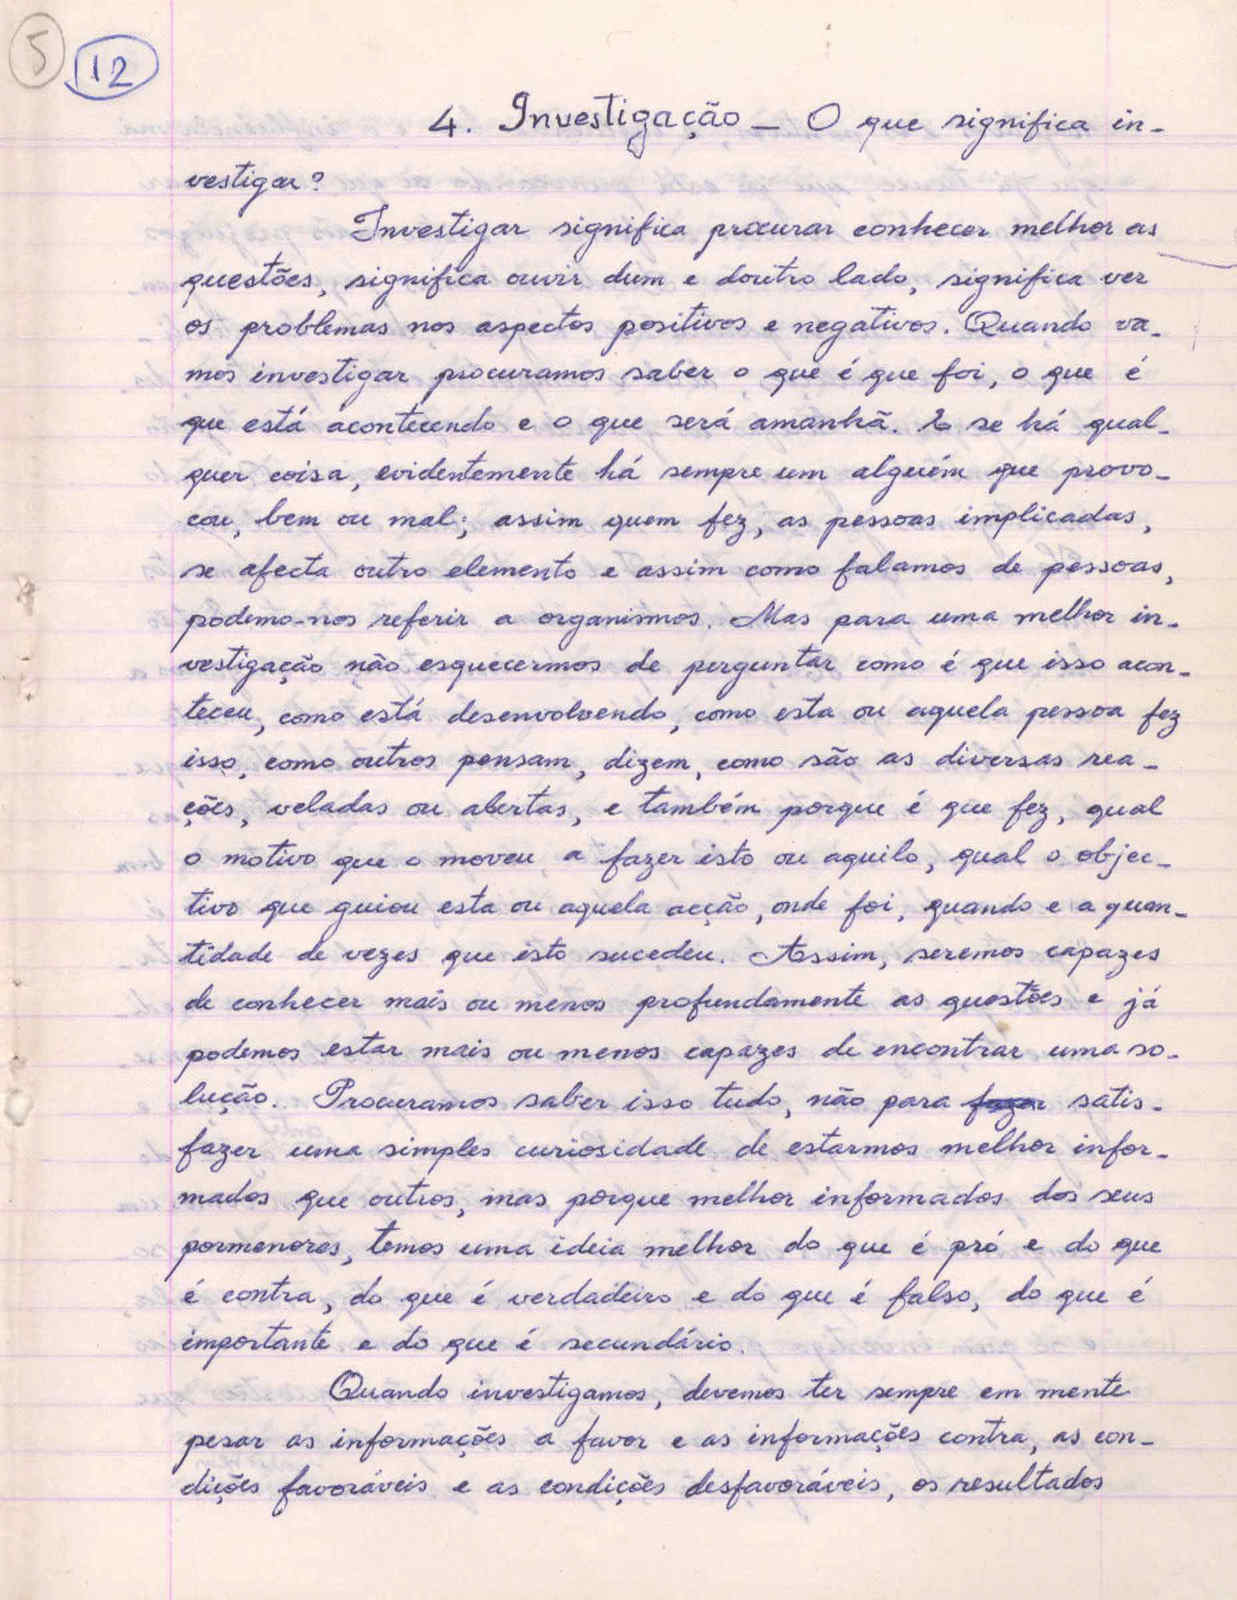 5
12
4. Investigação - O que significa in-
vestigar?
Investigar significa procurar conhecer melhor as
questões, significa ouvir dum e doutro lado, significa ver
os problemas nos aspectos positivos e negativos. Quando va-
mos investigar procuramos saber o que é que foi, o que é
que está acontecendo e o que será amanhã. E se há qual-
quer coisa, evidentemente há sempre um alguém que provo-
cou, bem ou mal; assim quem fez, as pessoas implicadas,
se afecta outro elemento e assim como falamos de pessoas,
podemo-nos referir a organismos. Mas para uma melhor in-
vestigação não esquecermos de perguntar como é que isso acon-
teceu, como está desenvolvendo, como esta ou aquela pessoa fez
isso, como outros pensam, dizem, como são as diversas rea-
ções, veladas ou abertas, e também porque é que fez, qual
o motivo que o moveu a fazer isto ou aquilo, qual o objec-
tivo que guiou esta ou aquela acção, onde foi, quando e a quan-
tidade de vezes que isto sucedeu. Assim, seremos capazes
de conhecer mais ou menos profundamente as questões e já
podemos estar mais ou menos capazes de encontrar uma so-
lução. Procuramos saber isso tudo, não para fazer satis-
fazer uma simples curiosidade de estarmos melhor infor-
mados que outros, mas porque melhor informados dos seus
pormenores, temos uma ideia melhor do que é pró e do que
é contra, do que é verdadeiro e do que é falso, do que é
importante e do que é secundário.
Quando investigamos, devemos ter sempre em mente
pesar as informações a favor e as informações contra, as con-
dições favoráveis e as condições desfavoráveis, os resultados